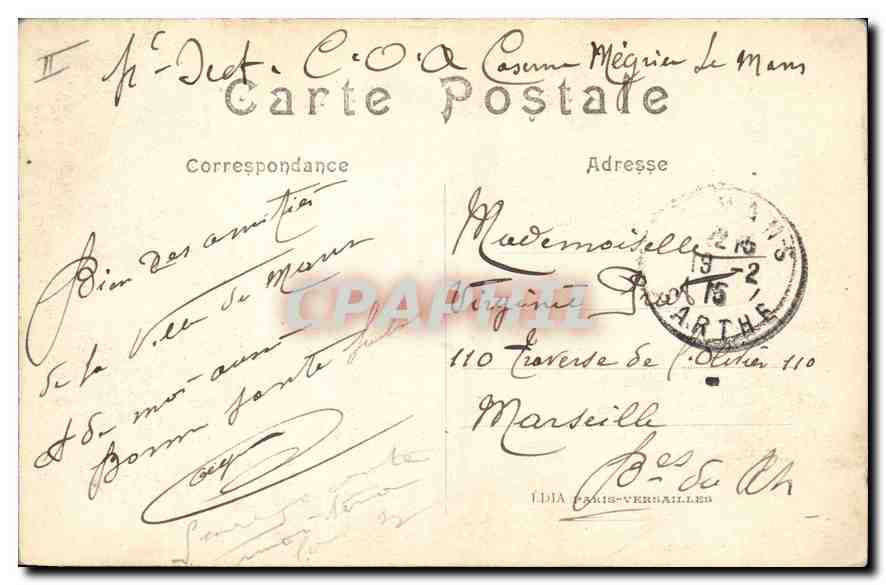 II
Sect. C.O.A Caserne Mégrier Le Mans
Carte Postale
Correspondance
Adresse
Bien des amitiés
de la Ville du Mans
et de moi aussi
Bonne santé
Mademoiselle
Virginie
110 Traverse de l'Olivier 110
Marseille
Bes du Rh
MANS
19 -2
15
SARTHE
CPAPHIL
EDIA PARIS-VERSAILLES